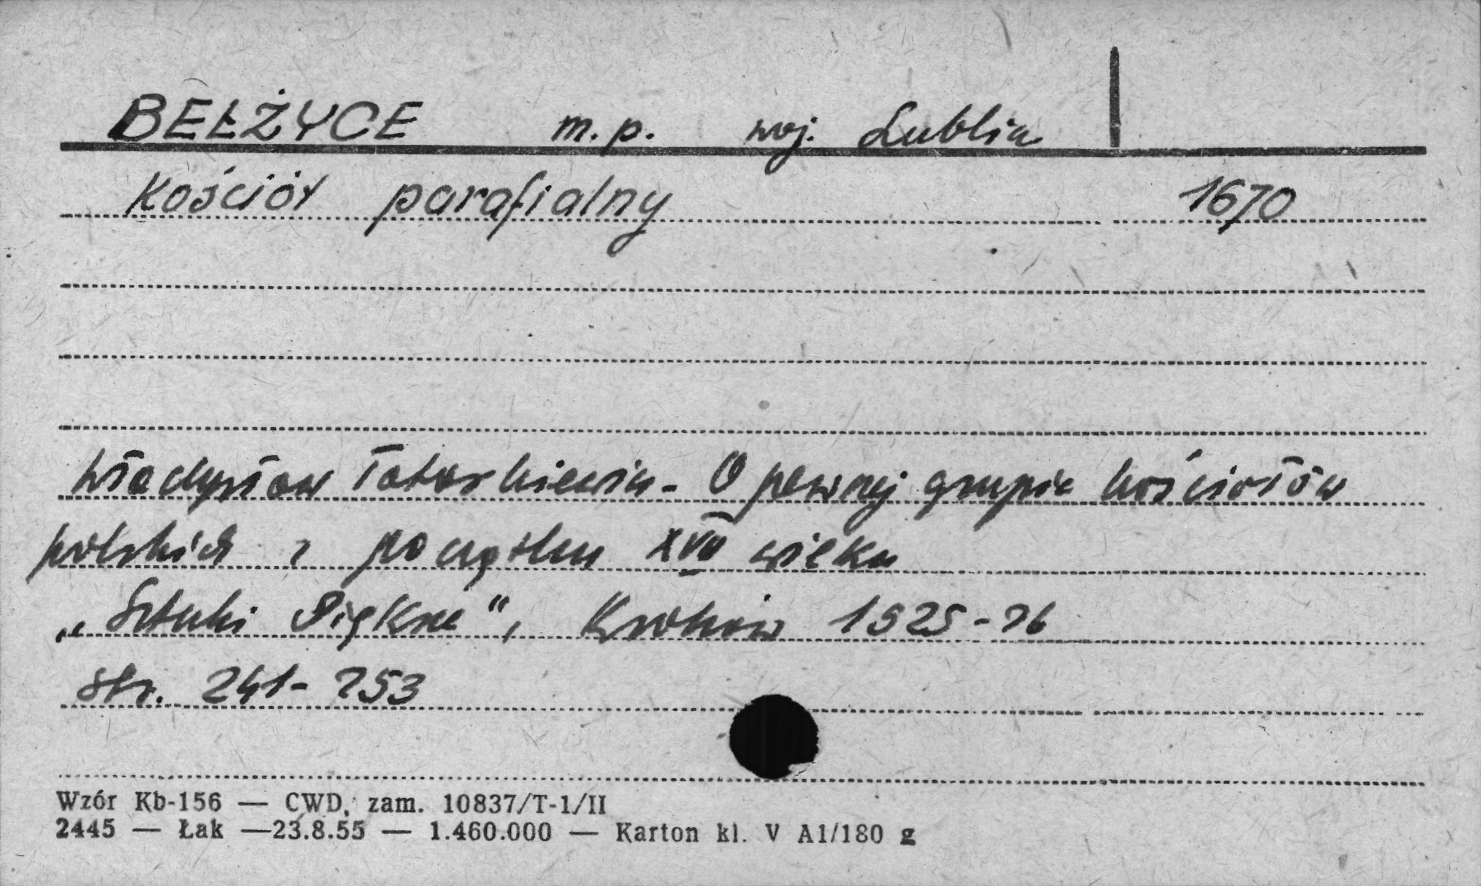 BEŁŻYCE m.p. woj. Lublin
Kościół parafialny 1670
Władysław Tatarkiewicz - O pewnej grupie kościołów
polskich z początku XVII wieku
„Sztuki Piękne", Kraków 1925-26
str. 241-253
Wzór Kb-156 — CWD, zam. 10837/T-1/II
2445 — Łak —23.8.55 — 1.460.000 — Karton kl. V A1/180 g